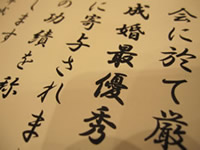 会に於て厳
成婚最優秀
に寄与されま
の功績を称
します